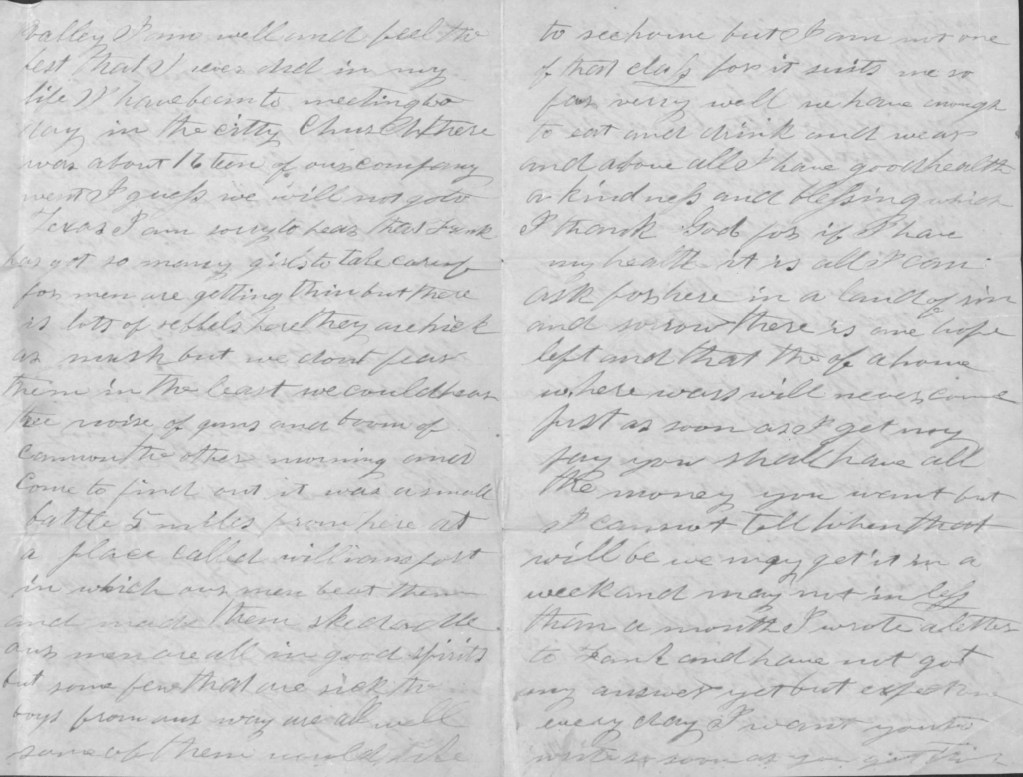 valley I am well and feel the
best that I ever did in my
life I have been to meeting to
day in the citty Church there
was about 16 teen of our company
went I guess we will not go to
Texas I am sorry to hear that Frank
has got so many girls to take care of
for men are getting thin but there
is lots of rebbels here they are thick
as mush but we dont fear
them in the least we could hear
the noise of guns and boom of
cannon the other morning and
come to find out it was a small
battle 5 miles from here at
a place called williamsport
in which our men beat them
and made them skedaddle
our men are all in good spirits
but some few that are sick the
boys from our way are all well
some of them would like
to see home but I am not one
of that class for it suits me so
far verry well we have enough
to eat and drink and wear
and above all I have good health
a kindness and blessing which
I thank God for if I have
my health it is all I can
ask for here in a land of sin
and sorrow there is one hope
left and that the of a home
where wars will never come
just as soon as I get my
pay you shall have all
the money you want but
I cannot tell when that
will be we may get it in a
week and may not in less
than a month I wrote a letter
to Frank and have not got
any answer yet but expect one
every day I want you to
write as soon as you get this